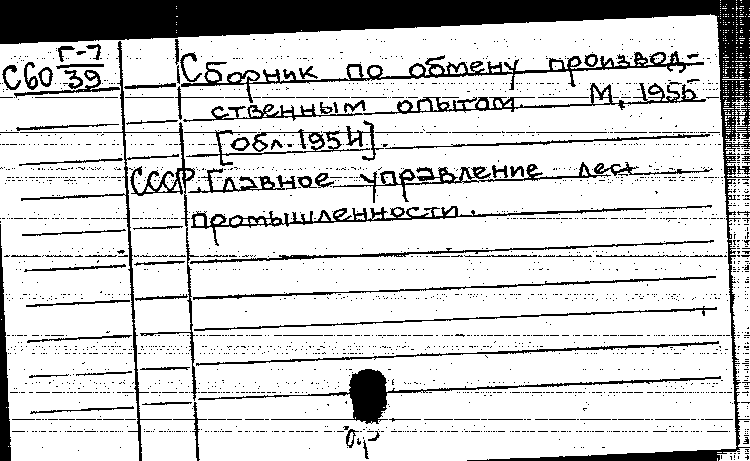 С60 Г-7/39 Сборник по обмену производ-
ственным опытом. М, 1955
[обл. 1954].
СССР. Главное управление лесн.
промышленности.